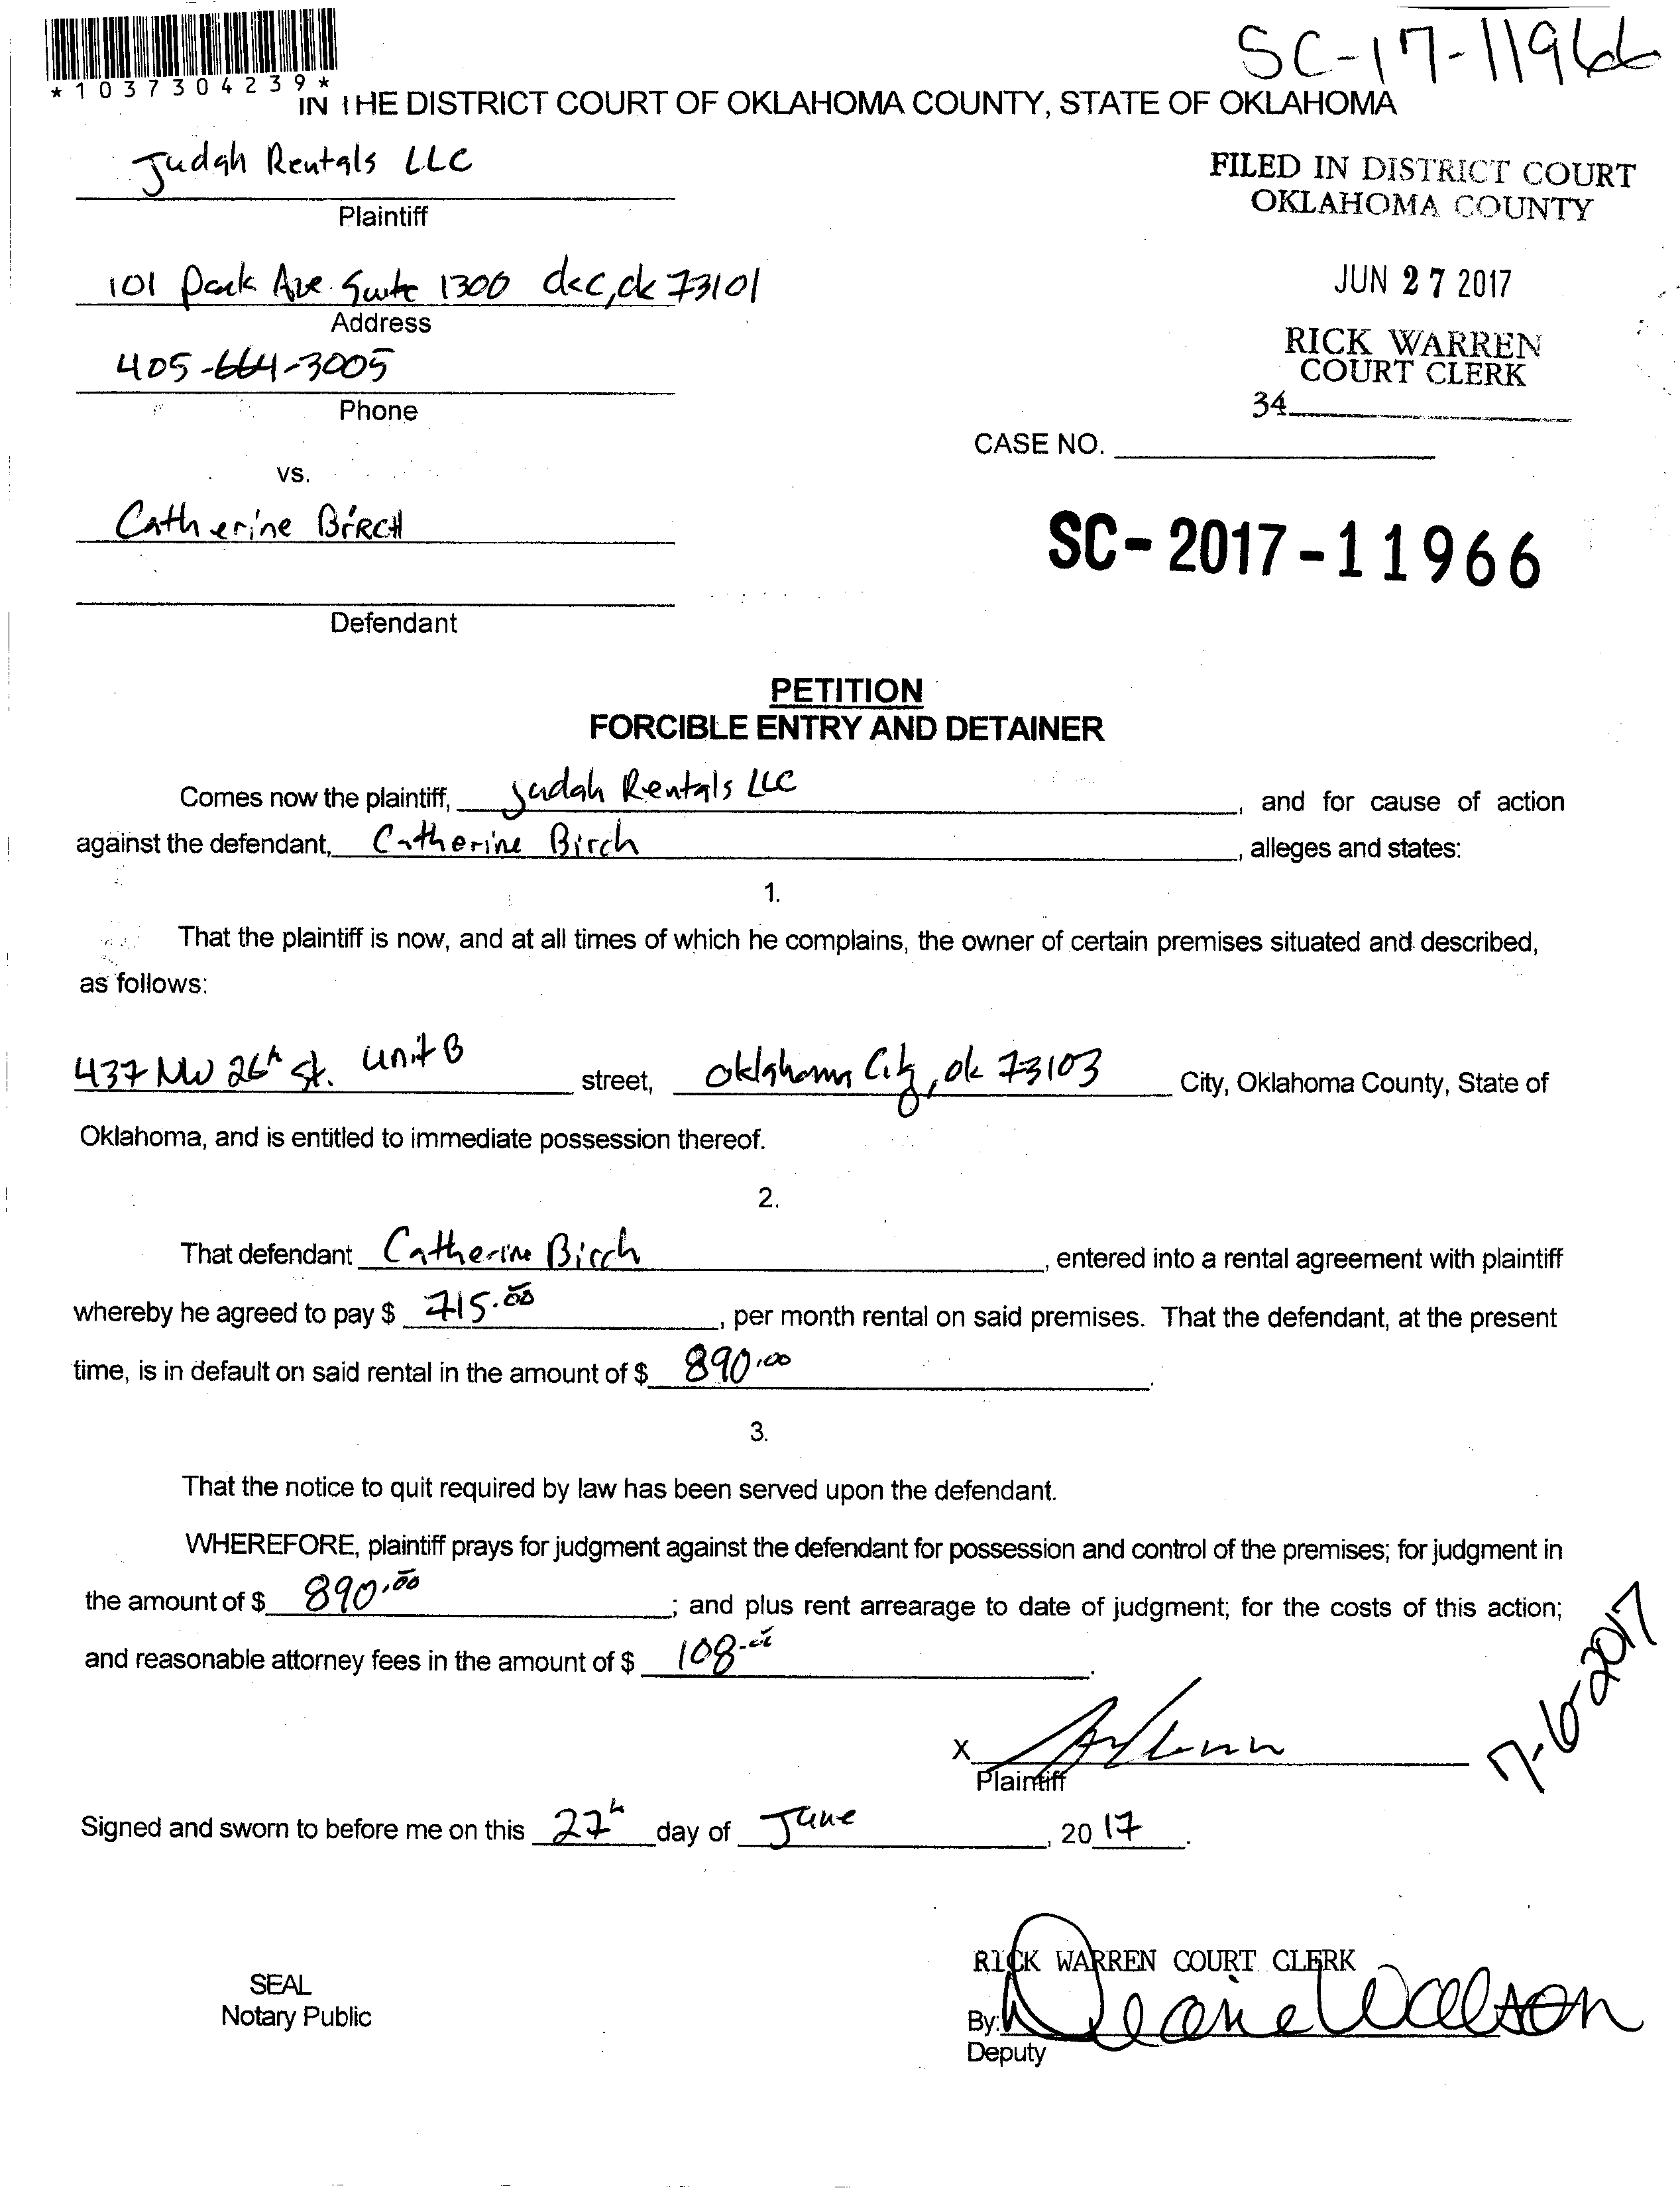 SC-17-11966
*1037304239*
IN THE DISTRICT COURT OF OKLAHOMA COUNTY, STATE OF OKLAHOMA
Judah Rentals LLC
Plaintiff
FILED IN DISTRICT COURT
OKLAHOMA COUNTY
101 Park Ave Suite 1300 okc, ok 73101
Address
JUN 27 2017
405-664-3005
Phone
RICK WARREN
COURT CLERK
34
CASE NO.
vs.
Catherine BiRCH
SC-2017-11966
Defendant
PETITION
FORCIBLE ENTRY AND DETAINER
Comes now the plaintiff, Judah Rentals LLC, and for cause of action
against the defendant, Catherine Birch, alleges and states:
1.
That the plaintiff is now, and at all times of which he complains, the owner of certain premises situated and described,
as follows:
437 NW 26th St. unit B street, Oklahoma City, ok 73103 City, Oklahoma County, State of
Oklahoma, and is entitled to immediate possession thereof.
2.
That defendant Catherine Birch, entered into a rental agreement with plaintiff
whereby he agreed to pay $ 715.00, per month rental on said premises. That the defendant, at the present
time, is in default on said rental in the amount of $ 890.00.
3.
That the notice to quit required by law has been served upon the defendant.
WHEREFORE, plaintiff prays for judgment against the defendant for possession and control of the premises; for judgment in
the amount of $ 890.00; and plus rent arrearage to date of judgment; for the costs of this action;
and reasonable attorney fees in the amount of $ 108.00.
7-6-2017
X
Plaintiff
Signed and sworn to before me on this 27th day of June, 2017.
RICK WARREN COURT CLERK
SEAL
Notary Public
By:
Deputy